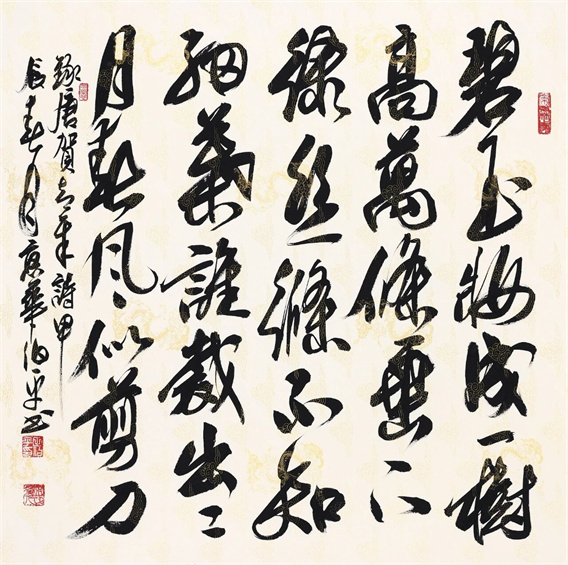 碧玉妝成一樹
高萬條垂下
綠絲絛不知
細葉誰裁出二
月春風似剪刀
錄唐賀知章詩甲
辰春月京華伯平書